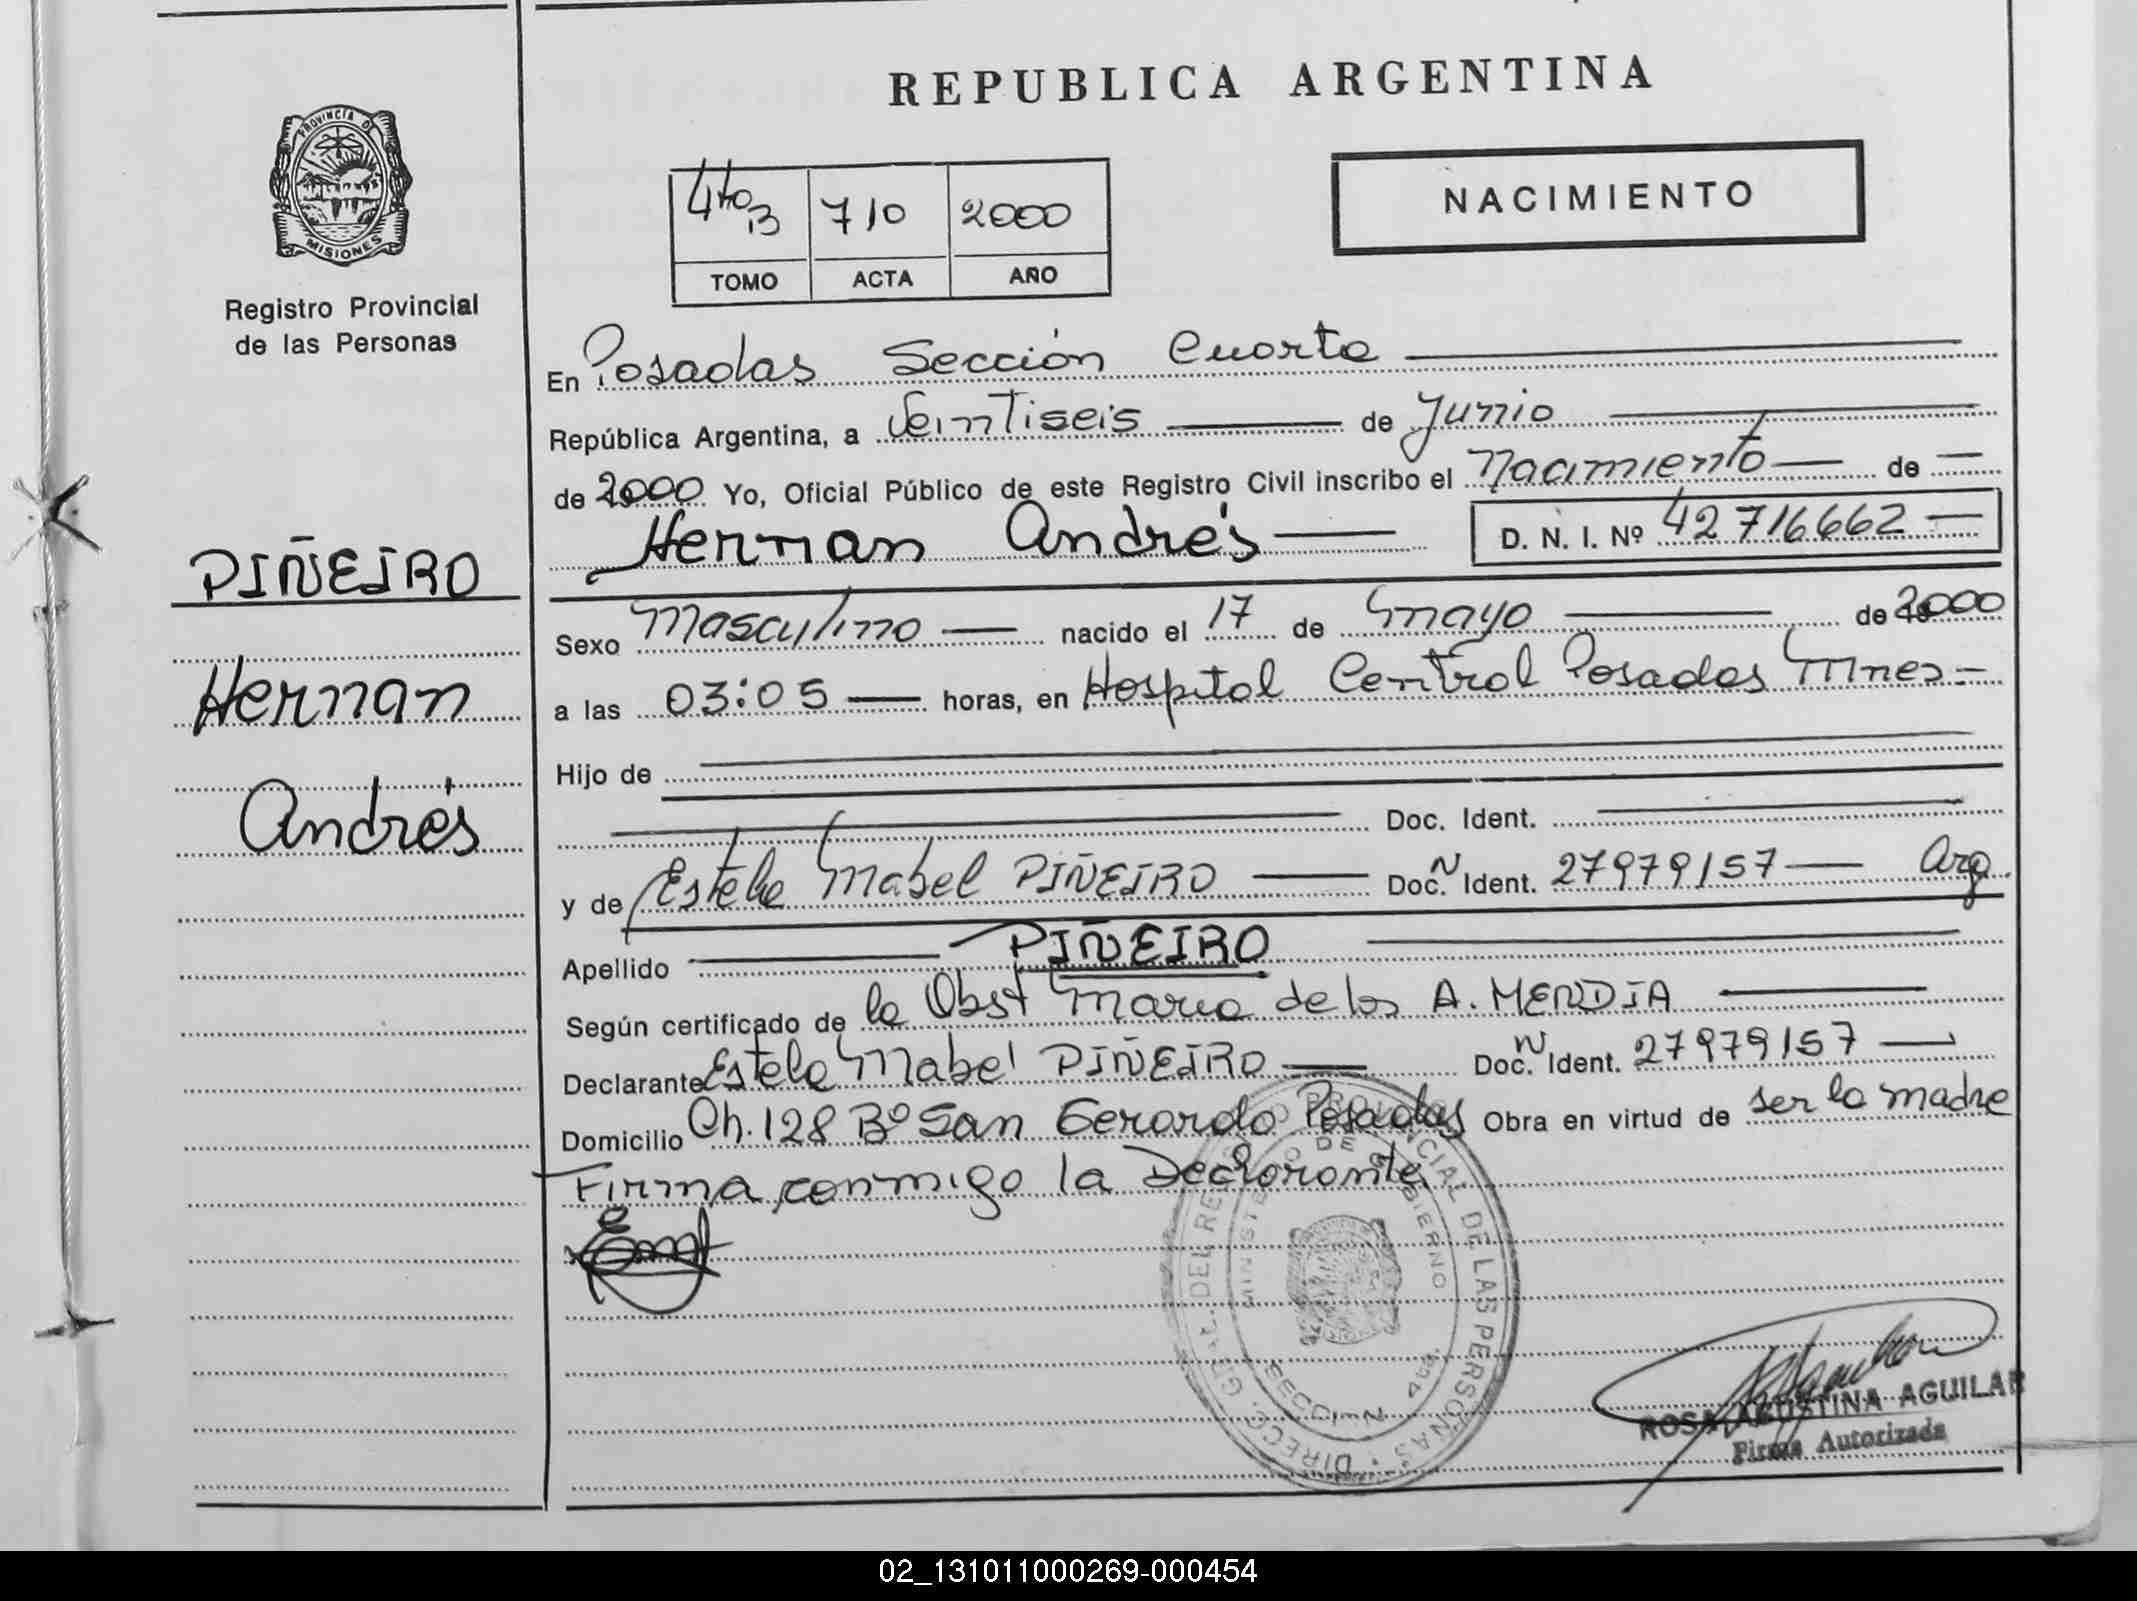 REPUBLICA ARGENTINA
PROVINCIA DE
MISIONES
Registro Provincial
de las Personas
4to B 710 2000
TOMO ACTA AÑO
NACIMIENTO
PIÑEIRO
Hernan
Andrés
En Posadas Sección Cuarta
República Argentina, a Veintiseis de Junio
de 2000 Yo, Oficial Público de este Registro Civil inscribo el Nacimiento de
Hernan Andrés D. N. I. Nº 42716662
Sexo Masculino nacido el 17 de Mayo de 2000
a las 03:05 horas, en Hospital Central Posadas Mnes
Hijo de
Doc. Ident.
y de Estela Mabel PIÑEIRO Doc. N Ident. 27979157 Arg.
Apellido PIÑEIRO
Según certificado de la Obst Maria de los A. MENDIA
Declarante Estela Mabel PIÑEIRO Doc. N Ident. 27979157
Domicilio Ch. 128 Bº San Gerardo Posadas Obra en virtud de ser la madre
Firma conmigo la Declarante
DIRECC. GRAL. DEL REGISTRO PROVINCIAL DE LAS PERSONAS
MINISTERIO DE GOBIERNO
SECCION 4ta.
ROSA AGUSTINA AGUILAR
Firma Autorizada
02_131011000269-000454